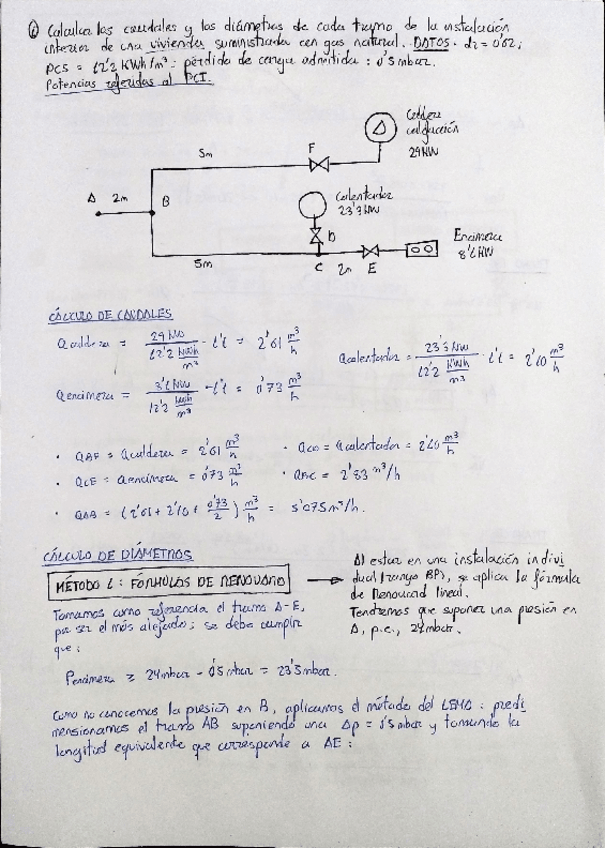 ① Calcular los caudales y los diámetros de cada tramo de la instalación
interior de una vivienda suministrada con gas natural. DATOS: dr = 0'62;
PCS = 12'2 kWh/m³; pérdida de carga admitida: 0'5 mbar.
Potencias referidas al PCI.
Caldera
calefacción
29 kW
5m
F
A
2m
B
Calentador
23'3 kW
D
Encimera
8'1 kW
5m
C
2m
E
CÁLCULO DE CAUDALES
Qcaldera = 29 kW / 12'2 kWh/m³ · 1'1 = 2'61 m³/h
Qcalentador = 23'3 kW / 12'2 kWh/m³ · 1'1 = 2'10 m³/h
Qencimera = 8'1 kW / 12'2 kWh/m³ · 1'1 = 0'73 m³/h
· QBF = Qcaldera = 2'61 m³/h
· QCD = Qcalentador = 2'10 m³/h
· QCE = Qencimera = 0'73 m³/h
· QBC = 2'83 m³/h
· QAB = (2'61 + 2'10 + 0'73/2) m³/h = 5'075 m³/h.
CÁLCULO DE DIÁMETROS
MÉTODO 1: FÓRMULAS DE RENOUARD
Al estar en una instalación indivi
dual (rango BP), se aplica la fórmula
de Renouard lineal.
Tendremos que suponer una presión en
A, p.e., 24 mbar.
Tomamos como referencia el tramo A-E,
por ser el más alejado; se debe cumplir
que:
Pencimera ≥ 24 mbar - 0'5 mbar = 23'5 mbar.
Como no conocemos la presión en B, aplicamos el método del : predi
mensionamos el tramo AB suponiendo una Δp = 0'5 mbar y tomando la
longitud equivalente que corresponde a AE: